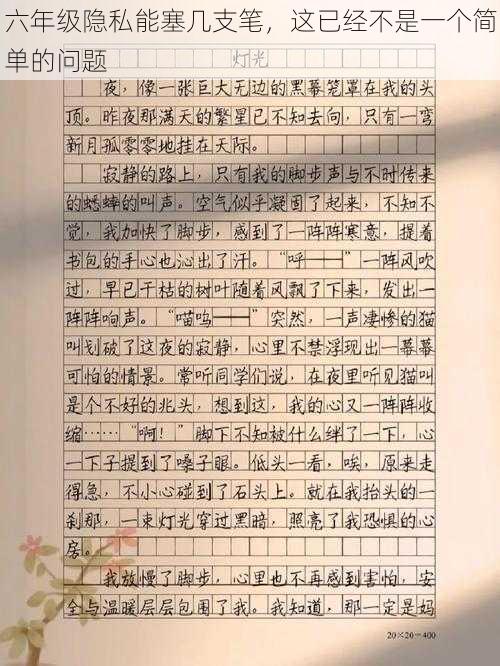 六年级隐私能塞几支笔，这已经不是一个简
单的问题
灯光
夜，像一张巨大无边的黑幕笼罩在我的头
顶。昨夜那满天的繁星已不知去向，只有一弯
新月孤零零地挂在天际。
寂静的路上，只有我的脚步声与不时传来
的蟋蟀的叫声。空气似乎凝固了起来，不知不
觉，我加快了脚步，感到了一阵阵寒意，提着
书包的手心也沁出了汗。“呼——”一阵风吹
过，早已干枯的树叶随着风飘了下来，发出一
阵阵响声。“喵呜——”突然，一声凄惨的猫
叫划破了这夜的寂静，心里不禁浮现出一幕幕
可怕的情景。常听同学们说，在夜里听见猫叫
是个不好的兆头，想到这，我的心又一阵阵收
缩……“啊！”脚下不知被什么绊了一下，心
一下子提到了嗓子眼。低头一看，唉，原来走
得急，不小心碰到了石头上。就在我抬头的一
刹那，一束灯光穿过黑暗，照亮了我恐惧的心
房。
我放慢了脚步，心里也不再感到害怕，安
全与温暖层层包围了我。我知道，那一定是妈
20×20=400